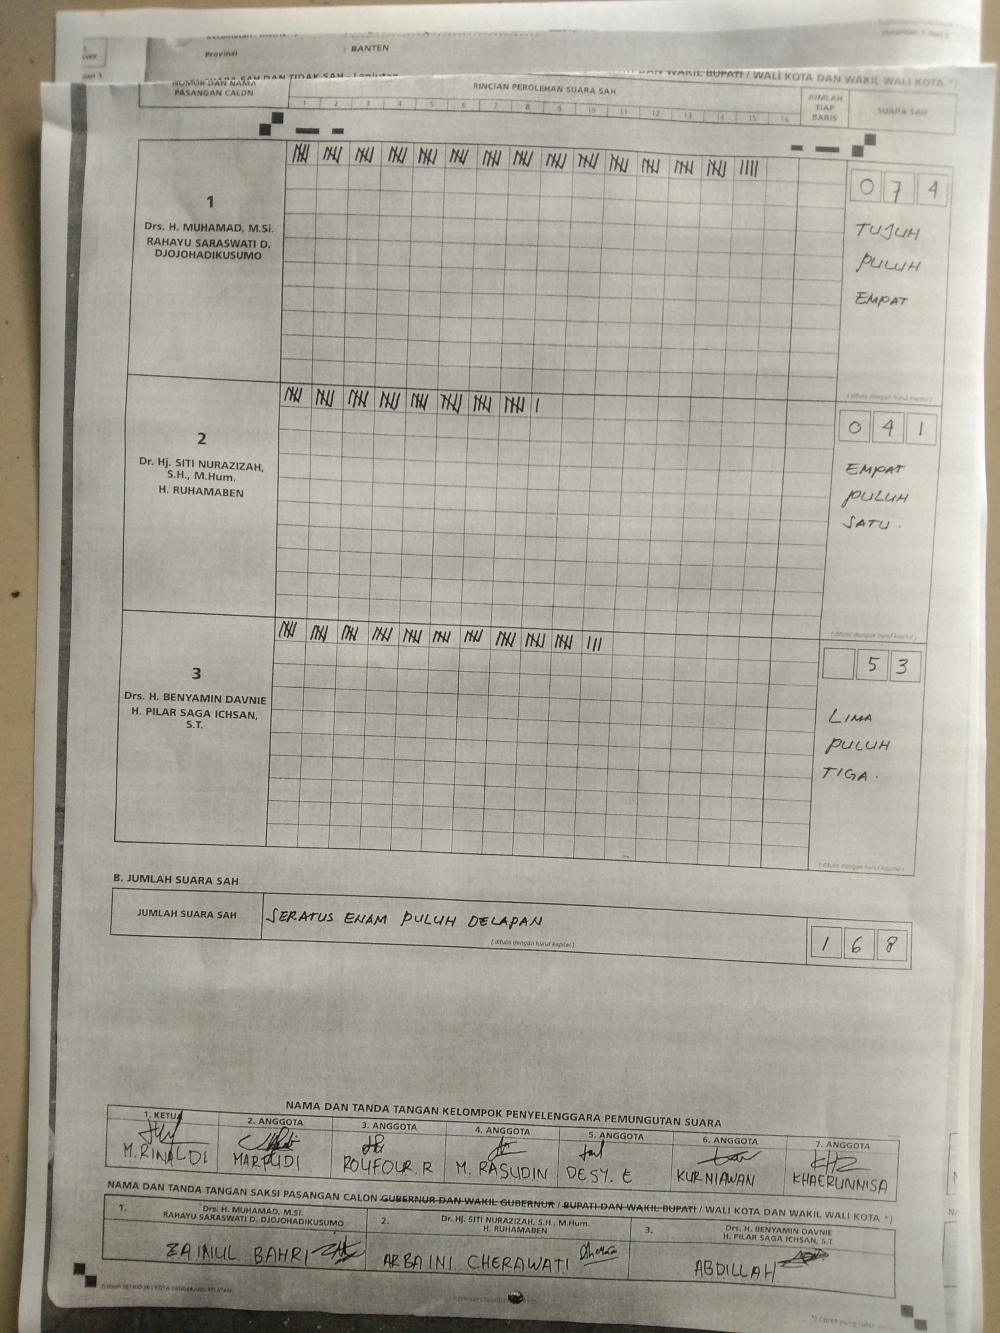 Provinsi : BANTEN
DAN WAKIL BUPATI / WALI KOTA DAN WAKIL WALI KOTA *)
SAH DAN TIDAK SAH - Lanjutan
NOMOR DAN NAMA PASANGAN CALON
RINCIAN PEROLEHAN SUARA SAH
JUMLAH TIAP BARIS
SUARA SAH
1 2 3 4 5 6 7 8 9 10 11 12 13 14 15 16
1
Drs. H. MUHAMAD, M.Si.
RAHAYU SARASWATI D.
DJOJOHADIKUSUMO
0 7 4
TUJUH
PULUH
EMPAT
( ditulis dengan huruf kapital )
2
Dr. Hj. SITI NURAZIZAH,
S.H., M.Hum.
H. RUHAMABEN
0 4 1
EMPAT
PULUH
SATU.
( ditulis dengan huruf kapital )
3
Drs. H. BENYAMIN DAVNIE
H. PILAR SAGA ICHSAN,
S.T.
5 3
LIMA
PULUH
TIGA.
( ditulis dengan huruf kapital )
B. JUMLAH SUARA SAH
JUMLAH SUARA SAH
SERATUS ENAM PULUH DELAPAN
( ditulis dengan huruf kapital )
1 6 8
NAMA DAN TANDA TANGAN KELOMPOK PENYELENGGARA PEMUNGUTAN SUARA
1. KETUA 2. ANGGOTA 3. ANGGOTA 4. ANGGOTA 5. ANGGOTA 6. ANGGOTA 7. ANGGOTA
M. RINALDI MARPUDI ROUFOUR. R M. RASUDIN DESY. E KURNIAWAN KHAERUNNISA
NAMA DAN TANDA TANGAN SAKSI PASANGAN CALON GUBERNUR DAN WAKIL GUBERNUR / BUPATI DAN WAKIL BUPATI / WALI KOTA DAN WAKIL WALI KOTA *)
1. Drs. H. MUHAMAD, M.SI.
RAHAYU SARASWATI D. DJOJOHADIKUSUMO
2. Dr. Hj. SITI NURAZIZAH, S.H., M.Hum.
H. RUHAMABEN
3. Drs. H. BENYAMIN DAVNIE
H. PILAR SAGA ICHSAN, S.T.
ZAINUL BAHRI
ARBAINI CHERAWATI
ABDILLAH